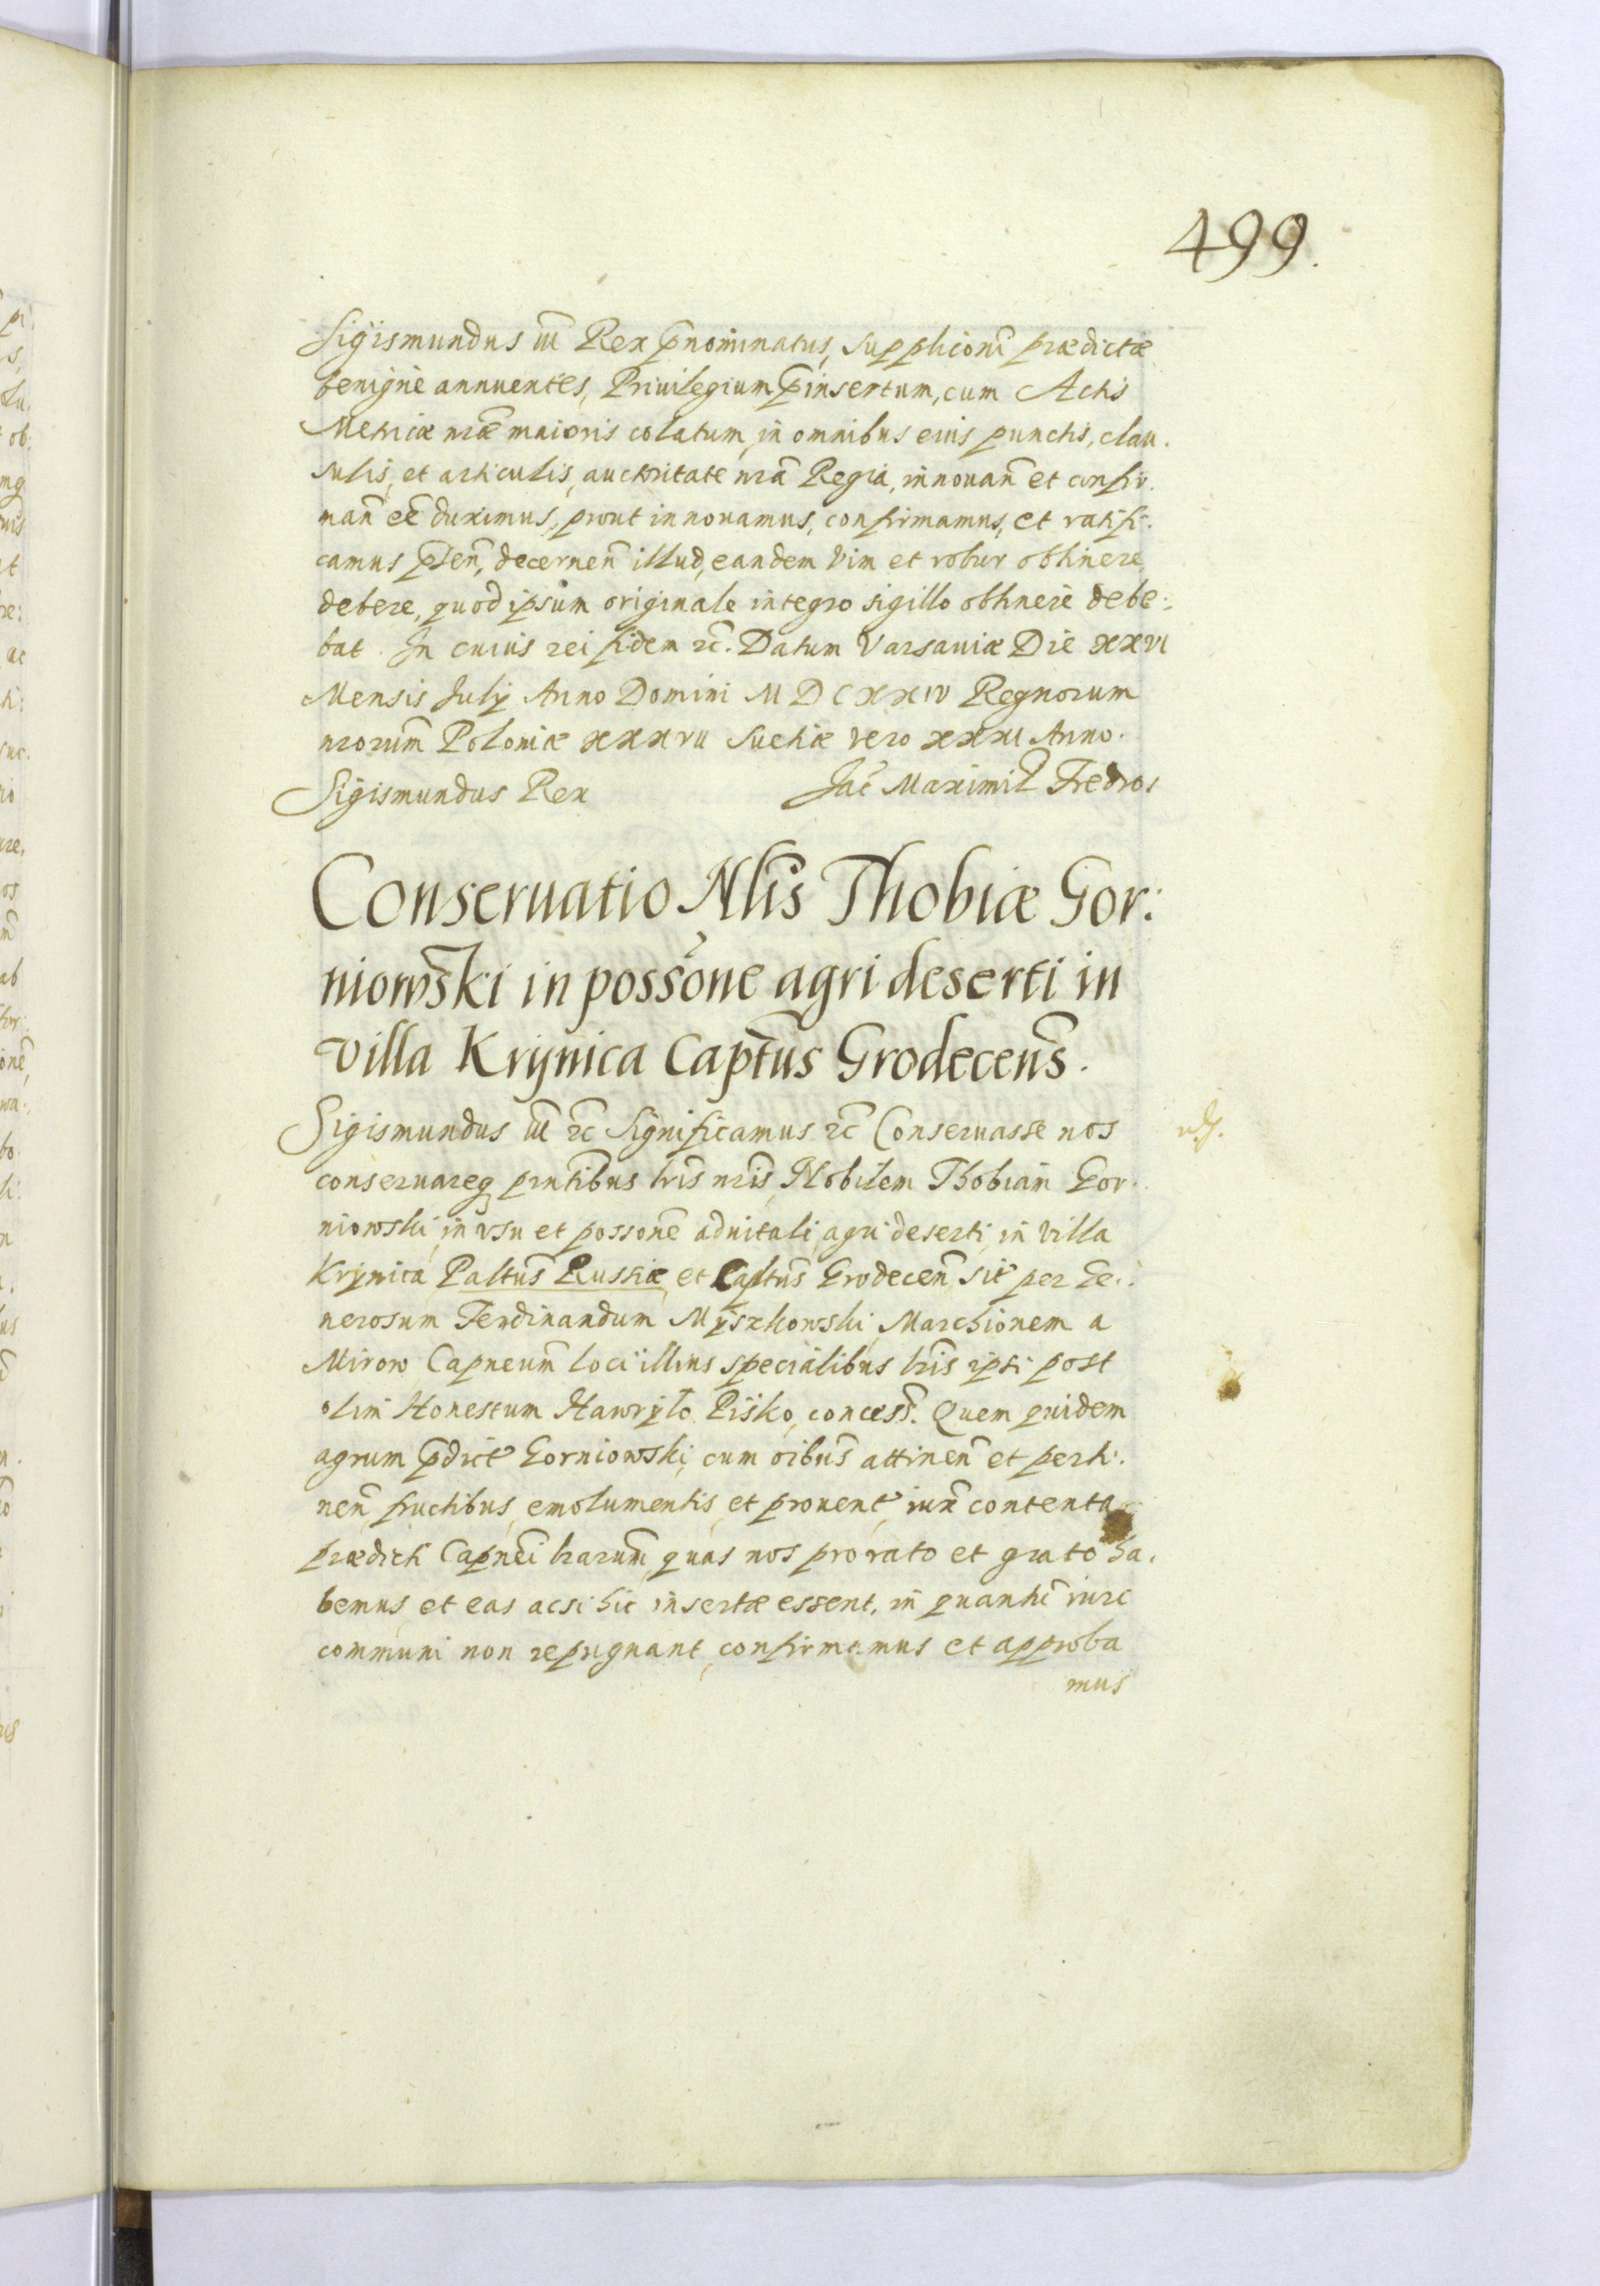 499.
Sigismundus III Rex p̃nominatus, supplicõni prædictæ
benigne annuentes, Priuilegium p̃insertum, cum Actis
Metricæ nr̃æ maioris colatum, in omnibus eius punctis, clau.
sulis, et articulis, auctoritate nr̃a Regia, innouañ et confir.
mañ eẽ duximus, prout innouamus, confirmamus, et ratifi.
camus p̃señ, decerneñ illud, eandem vim et robur obtinere
debere, quod ipsum originale integro sigillo obtinere debe.
bat. In cuius rei fidem etc̃. Datum Varsauiæ Die XXVI
Mensis July Anno Domini M D C XXIV Regnorum
nrorum̃ Poloniæ XXXVII Suetiæ vero XXXI Anno.
Sigismundus Rex Jac̃ Maximil̃ Fredros
Conseruatio Nlis̃ Thobiæ Gor:
niowski in possõne agri deserti in
villa Krynica Captũs Grodeceñs.
Sigismundus III etc̃ Significamus etc̃ Conseruasse nos
conseruareq̃ prñtibus lrĩs nrĩs, Nobilem Thobiam Gor.
niowski, in vsu et possonẽ aduitali, agri deserti, in villa
Krynica Paltũs Russiæ, et Captũs Grodeceñ sit̃ per Ge.
nerosum Ferdinandum Myszkowski, Marchionem a
Mirow Capneum̃ loci illius specialibus lrĩs ipsi post
olim Honestum Hawryło Pisko, concess̃. Quem quidem
agrum p̃dict̃ Gorniowski, cum oĩbus attineñ et perti.
neñ fructibus, emolumentis, et prouent̃, iux̃ contenta
prædicti Capnẽi lrarum̃, quas nos pro rato et grato ha.
bemus, et eas acsi hic insertæ essent, in quantũ iuri
communi non repugnant, confirmamus et approba
mus